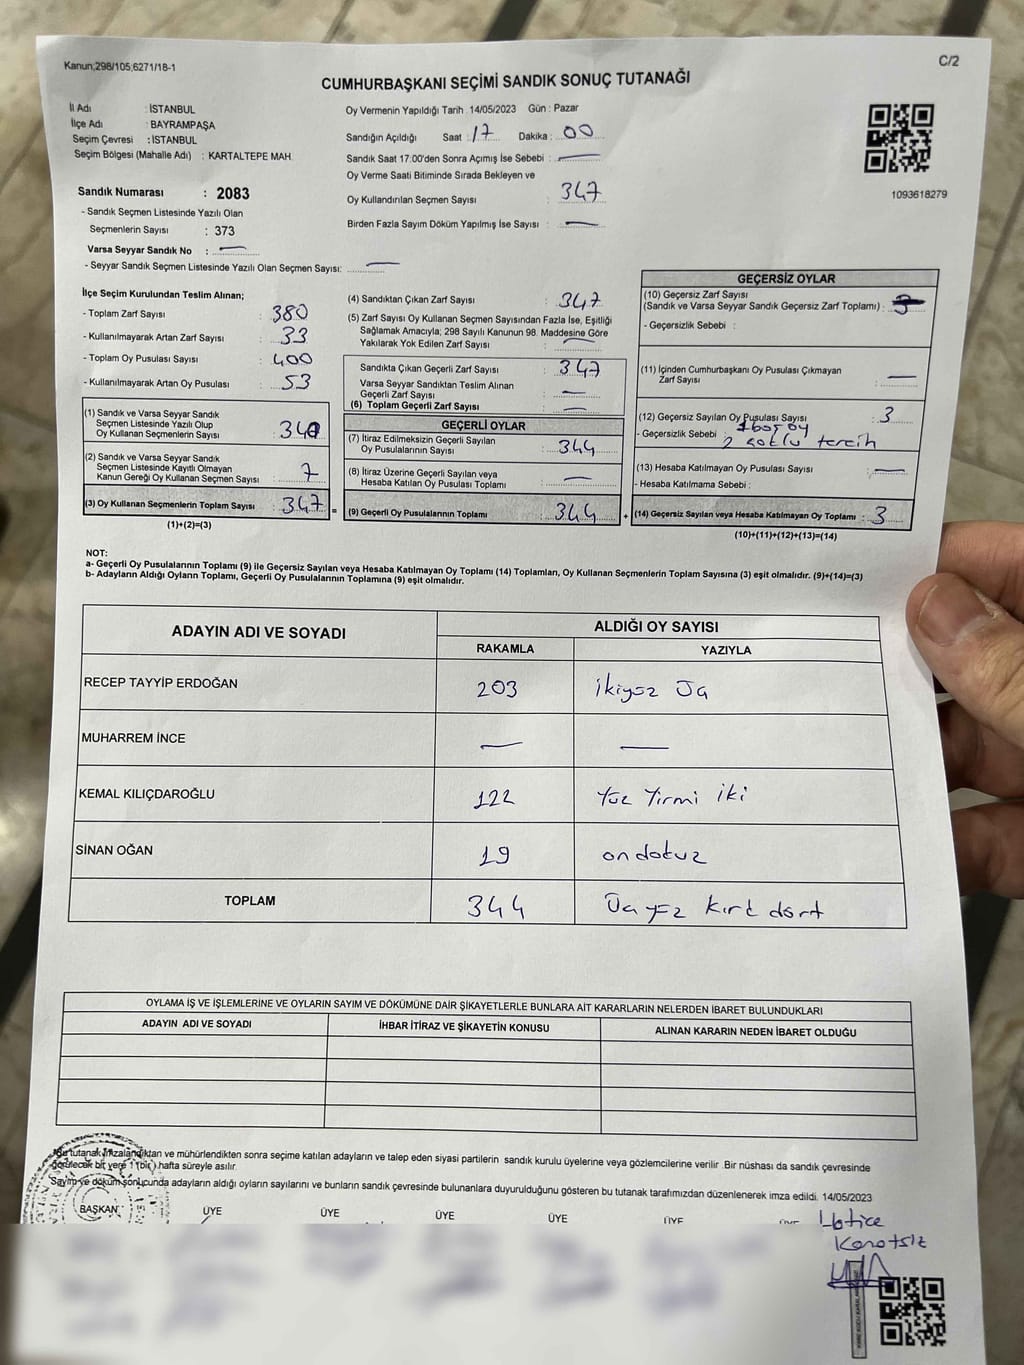 Kanun;298/105,6271/18-1
C/2
CUMHURBAŞKANI SEÇİMİ SANDIK SONUÇ TUTANAĞI
İl Adı : İSTANBUL
İlçe Adı : BAYRAMPAŞA
Seçim Çevresi : İSTANBUL
Seçim Bölgesi (Mahalle Adı) : KARTALTEPE MAH.
Sandık Numarası : 2083
- Sandık Seçmen Listesinde Yazılı Olan
Seçmenlerin Sayısı : 373
Varsa Seyyar Sandık No : —
- Seyyar Sandık Seçmen Listesinde Yazılı Olan Seçmen Sayısı: —
Oy Vermenin Yapıldığı Tarih : 14/05/2023 Gün : Pazar
Sandığın Açıldığı Saat : 17 Dakika : 00
Sandık Saat 17:00'den Sonra Açımış İse Sebebi : —
Oy Verme Saati Bitiminde Sırada Bekleyen ve
Oy Kullandırılan Seçmen Sayısı : 347
Birden Fazla Sayım Döküm Yapılmış İse Sayısı : —
1093618279
İlçe Seçim Kurulundan Teslim Alınan;
- Toplam Zarf Sayısı : 380
- Kullanılmayarak Artan Zarf Sayısı : 33
- Toplam Oy Pusulası Sayısı : 400
- Kullanılmayarak Artan Oy Pusulası : 53
(1) Sandık ve Varsa Seyyar Sandık
Seçmen Listesinde Yazılı Olup
Oy Kullanan Seçmenlerin Sayısı : 340
(2) Sandık ve Varsa Seyyar Sandık
Seçmen Listesinde Kayıtlı Olmayan
Kanun Gereği Oy Kullanan Seçmen Sayısı : 7
(3) Oy Kullanan Seçmenlerin Toplam Sayısı : 347
(1)+(2)=(3)
=
(4) Sandıktan Çıkan Zarf Sayısı : 347
(5) Zarf Sayısı Oy Kullanan Seçmen Sayısından Fazla İse, Eşitliği
Sağlamak Amacıyla; 298 Sayılı Kanunun 98. Maddesine Göre
Yakılarak Yok Edilen Zarf Sayısı : —
Sandıkta Çıkan Geçerli Zarf Sayısı : 347
Varsa Seyyar Sandıktan Teslim Alınan
Geçerli Zarf Sayısı : —
(6) Toplam Geçerli Zarf Sayısı : —
GEÇERLİ OYLAR
(7) İtiraz Edilmeksizin Geçerli Sayılan
Oy Pusulalarının Sayısı : 344
(8) İtiraz Üzerine Geçerli Sayılan veya
Hesaba Katılan Oy Pusulası Toplamı : —
(9) Geçerli Oy Pusulalarının Toplamı : 344
+
GEÇERSİZ OYLAR
(10) Geçersiz Zarf Sayısı
(Sandık ve Varsa Seyyar Sandık Geçersiz Zarf Toplamı) :
- Geçersizlik Sebebi :
(11) İçinden Cumhurbaşkanı Oy Pusulası Çıkmayan
Zarf Sayısı : —
(12) Geçersiz Sayılan Oy Pusulası Sayısı : 3
- Geçersizlik Sebebi : 1 boş oy
2 çoklu tercih
(13) Hesaba Katılmayan Oy Pusulası Sayısı : —
- Hesaba Katılmama Sebebi :
(14) Geçersiz Sayılan veya Hesaba Katılmayan Oy Toplamı : 3
(10)+(11)+(12)+(13)=(14)
NOT:
a- Geçerli Oy Pusulalarının Toplamı (9) ile Geçersiz Sayılan veya Hesaba Katılmayan Oy Toplamı (14) Toplamları, Oy Kullanan Seçmenlerin Toplam Sayısına (3) eşit olmalıdır. (9)+(14)=(3)
b- Adayların Aldığı Oyların Toplamı, Geçerli Oy Pusulalarının Toplamına (9) eşit olmalıdır.
ADAYIN ADI VE SOYADI
ALDIĞI OY SAYISI
RAKAMLA YAZIYLA
RECEP TAYYİP ERDOĞAN 203 ikiyüz üç
MUHARREM İNCE — —
KEMAL KILIÇDAROĞLU 122 Yüz Yirmi iki
SİNAN OĞAN 19 ondokuz
TOPLAM 344 Üç yüz kırk dört
OYLAMA İŞ VE İŞLEMLERİNE VE OYLARIN SAYIM VE DÖKÜMÜNE DAİR ŞİKAYETLERLE BUNLARA AİT KARARLARIN NELERDEN İBARET BULUNDUKLARI
ADAYIN ADI VE SOYADI İHBAR İTİRAZ VE ŞİKAYETİN KONUSU ALINAN KARARIN NEDEN İBARET OLDUĞU
Bu tutanak imzalandıktan ve mühürlendikten sonra seçime katılan adayların ve talep eden siyasi partilerin sandık kurulu üyelerine veya gözlemcilerine verilir .Bir nüshası da sandık çevresinde
görülecek bir yere 1 (bir) hafta süreyle asılır.
Sayım ve döküm sonucunda adayların aldığı oyların sayılarını ve bunların sandık çevresinde bulunanlara duyurulduğunu gösteren bu tutanak tarafımızdan düzenlenerek imza edildi. 14/05/2023
BAŞKAN ÜYE ÜYE ÜYE ÜYE ÜYE ÜYE
Hatice